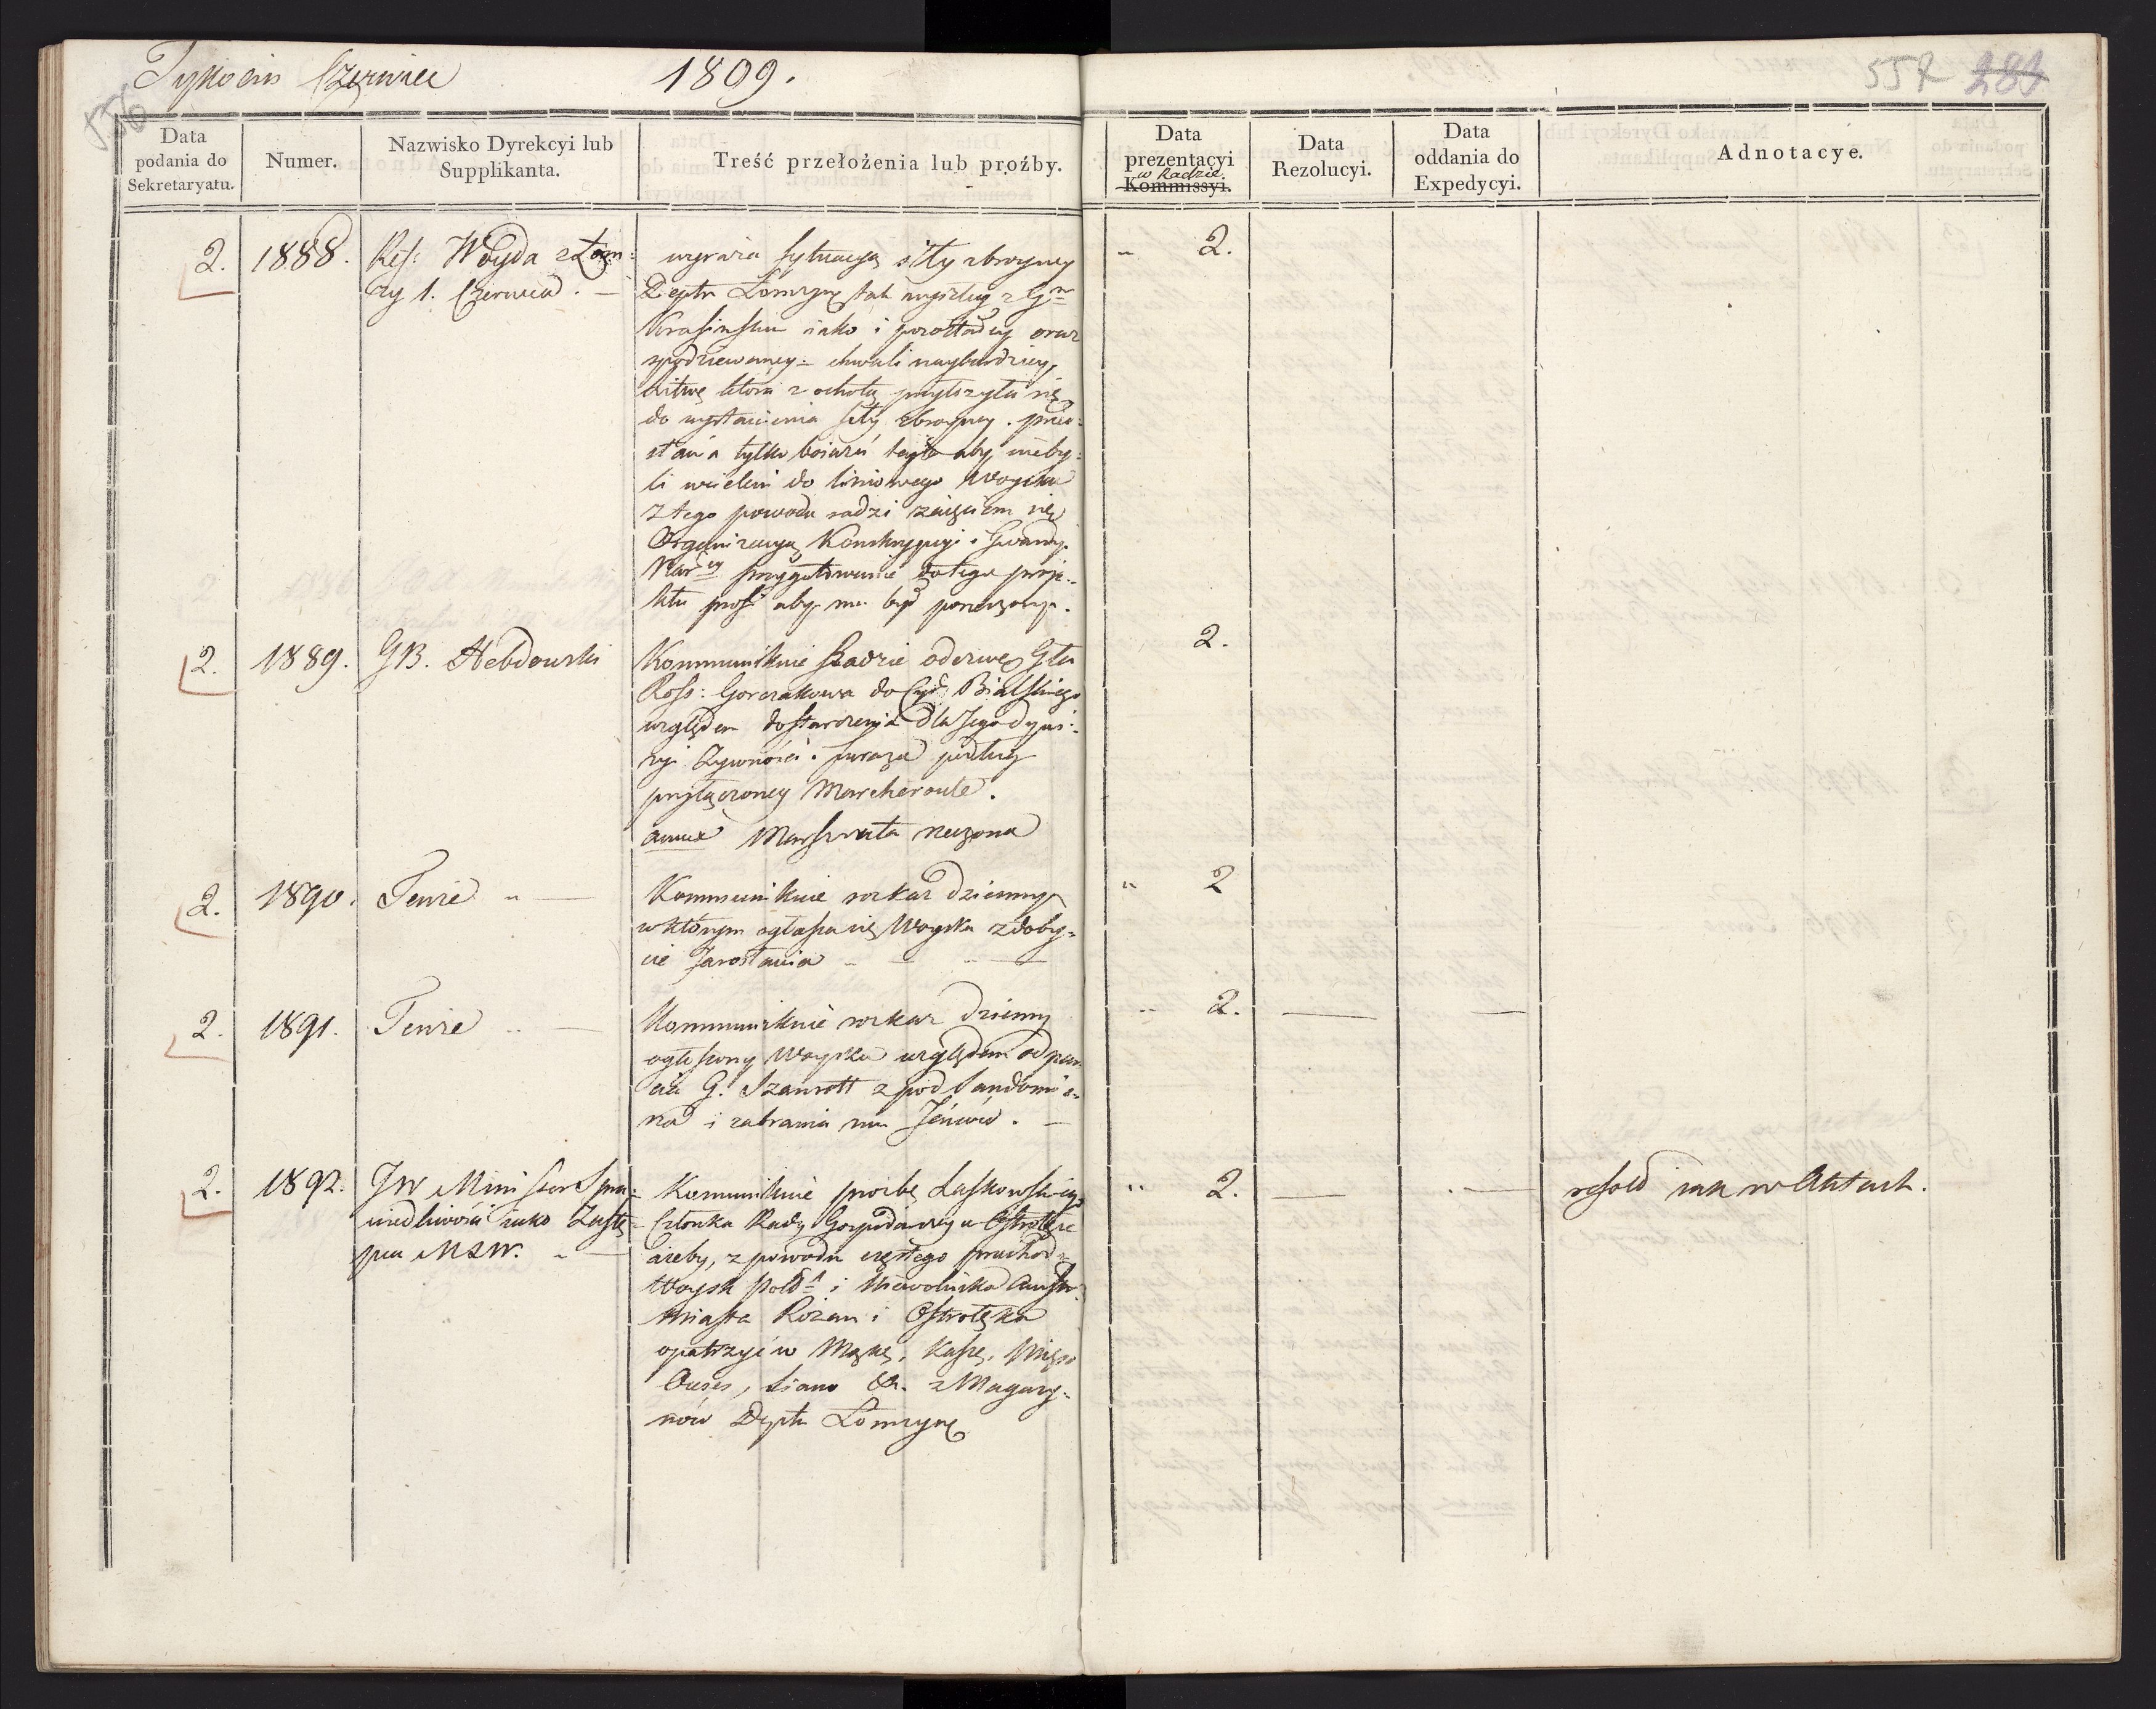 Tykocin Czerwiec 1809.
556
557 283
Data podania do Sekretaryatu.
Numer.
Nazwisko Dyrekcyi lub Supplikanta.
Treść przełożenia lub proźby.
Data prezentacyi w Radzie. Kommissyi.
Data Rezolucyi.
Data oddania do Expedycyi.
Adnotacye.
2. 1888. Ref: Woyda z Łom:
ży 1. Czerwca. —
wyraża sytuacyą siły zbroyney
Deptu Łomżyń tak wyszłey z
Krasińskim iako i pozostałey oraz
spodziewaney - chwali naybardziey,
Litwę która z ochotą przyłożyła się
do wystawienia siły zbroyney.
tylko boiaźń tayże aby nieby=
li wcieleni do liniowego Woyska
z tego powodu radzi zaięciem się
Organizacyą Konskrypcyi i Gwardyi
Narwey przygotowanie do tego proje=
ktu prosi aby mu był powierzony.
" 2.
2. 1889. GB. Hebdowski
Kommunikuie Radzie odezwę Gła
Ross: Gorczakowa do Cyrk: Bialskiego
względem dostarczenia dla Jego dywi=
zyi żywności i furażu podług
przyłączoney Marcheroute.
annex Marszruta ruczona
2.
2. 1890. Tenże " —
Kommunikuie rozkaz dzienny
w którym ogłasza się Woysku zdoby=
cie Jarosławia — —
" 2
2. 1891. Tenże " —
Kommunikuie rozkaz dzienny
ogłoszony Woysku względem odpar=
cia G. Szaurott z pod Sandomie=
rza i zabrania mu Jeńców. —
" 2. — —
2. 1892. JW Minister Spra=
wiedliwości iako Zastę=
pca MSW. " —
Kommunikuie proźbę Laskowskiego
Członka Rady Gospodarczey w Ostrołęce
ażeby, z powodu częstego przechodu
Woysk Pols: i Niewolnika Austr:
Miasta Rożan i Ostrołęka
opatrzyć w Mąkę, Kaszę, Mięso
Owies, Siano &c. z Magazy=
nów Deptu Łomżyń
" 2. — —
resold iak w Aktach.